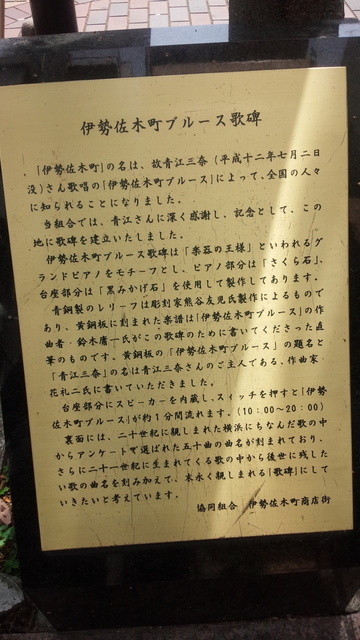 伊勢佐木町ブルース歌碑
「伊勢佐木町」の名は、故青江三奈（平成十二年七月二日
没）さん歌唱の「伊勢佐木町ブルース」によって、全国の人々
に知られることになりました。
当組合では、青江さんに深く感謝し、記念として、この
地に歌碑を建立いたしました。
伊勢佐木町ブルース歌碑は「楽器の王様」といわれるグ
ランドピアノをモチーフとし、ピアノ部分は「さくら石」、
台座部分は「黒みかげ石」を使用して製作してあります。
青銅製のレリーフは彫刻家熊谷友児氏製作によるもので
あり、黄銅板に刻まれた楽譜は「伊勢佐木町ブルース」の作
曲者・鈴木庸一氏がこの歌碑のために書いてくださった直
筆のものです。黄銅板の「伊勢佐木町ブルース」の題名と
「青江三奈」の名は青江三奈さんのご主人である、作曲家・
花礼二氏に書いていただきました。
台座部分にスピーカーを内蔵し、スイッチを押すと「伊勢
佐木町ブルース」が約1分間流れます。（10:00〜20:00）
裏面には、二十世紀に親しまれた横浜にちなんだ歌の中
からアンケートで選ばれた五十曲の曲名が刻まれており、
さらに二十一世紀に生まれてくる歌の中から後世に残した
い歌の曲名を刻み加えて、末永く親しまれる「歌碑」にして
いきたいと考えています。
協同組合　伊勢佐木町商店街